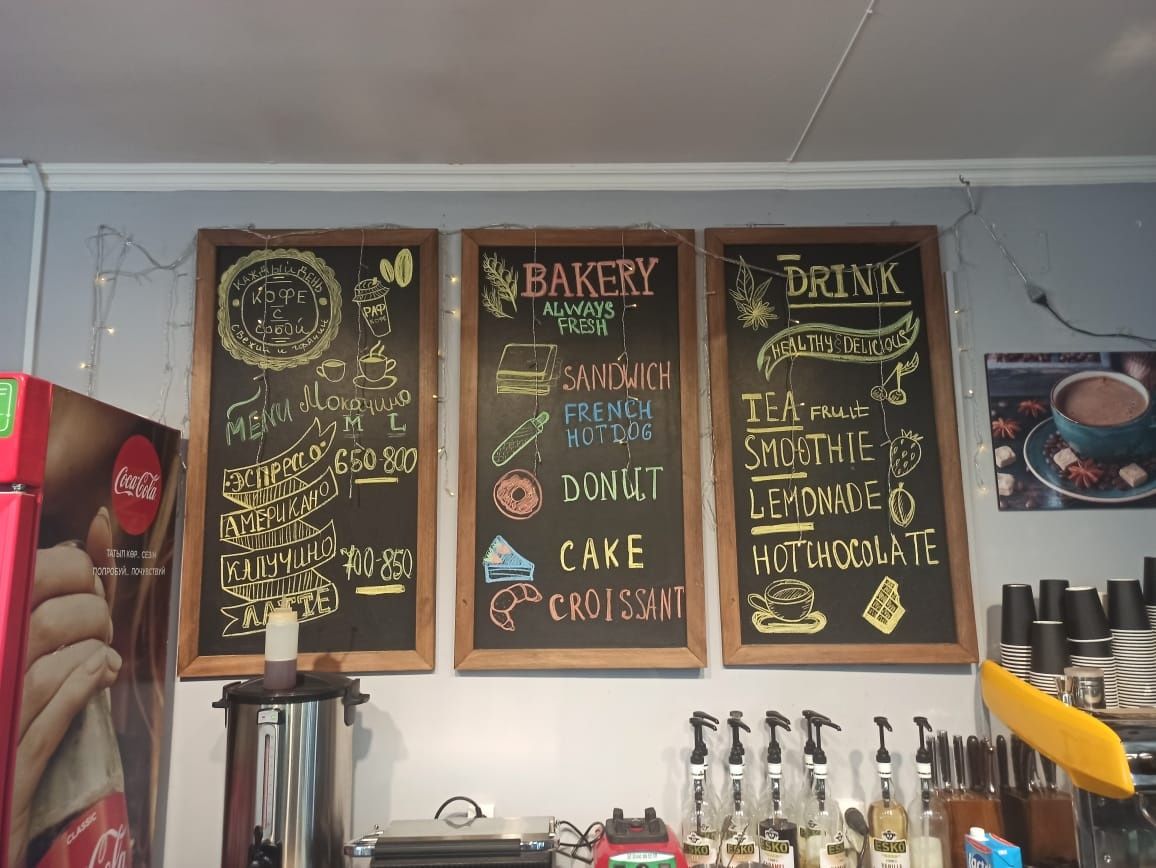 КАЖДЫЙ ДЕНЬ
КОФЕ
С
СОБОЙ
СВЕЖИЙ И ГОРЯЧИЙ
РАФ
MENU
Мокачино
M L
ЭСПРЕССО
650-800
АМЕРИКАНО
КАПУЧИНО
700-850
ЛАТТЕ
BAKERY
ALWAYS
FRESH
SANDWICH
FRENCH
HOTDOG
DONUT
CAKE
CROISSANT
DRINK
HEALTHY & DELICIOUS
TEA-FRUIT
SMOOTHIE
LEMONADE
HOT CHOCOLATE
Coca-Cola
ТАТЫП КӨР.. СЕЗІН
ПОПРОБУЙ.. ПОЧУВСТВУЙ
CLASSIC
ESKO
ESKO
ESKO
ESKO
ESKO